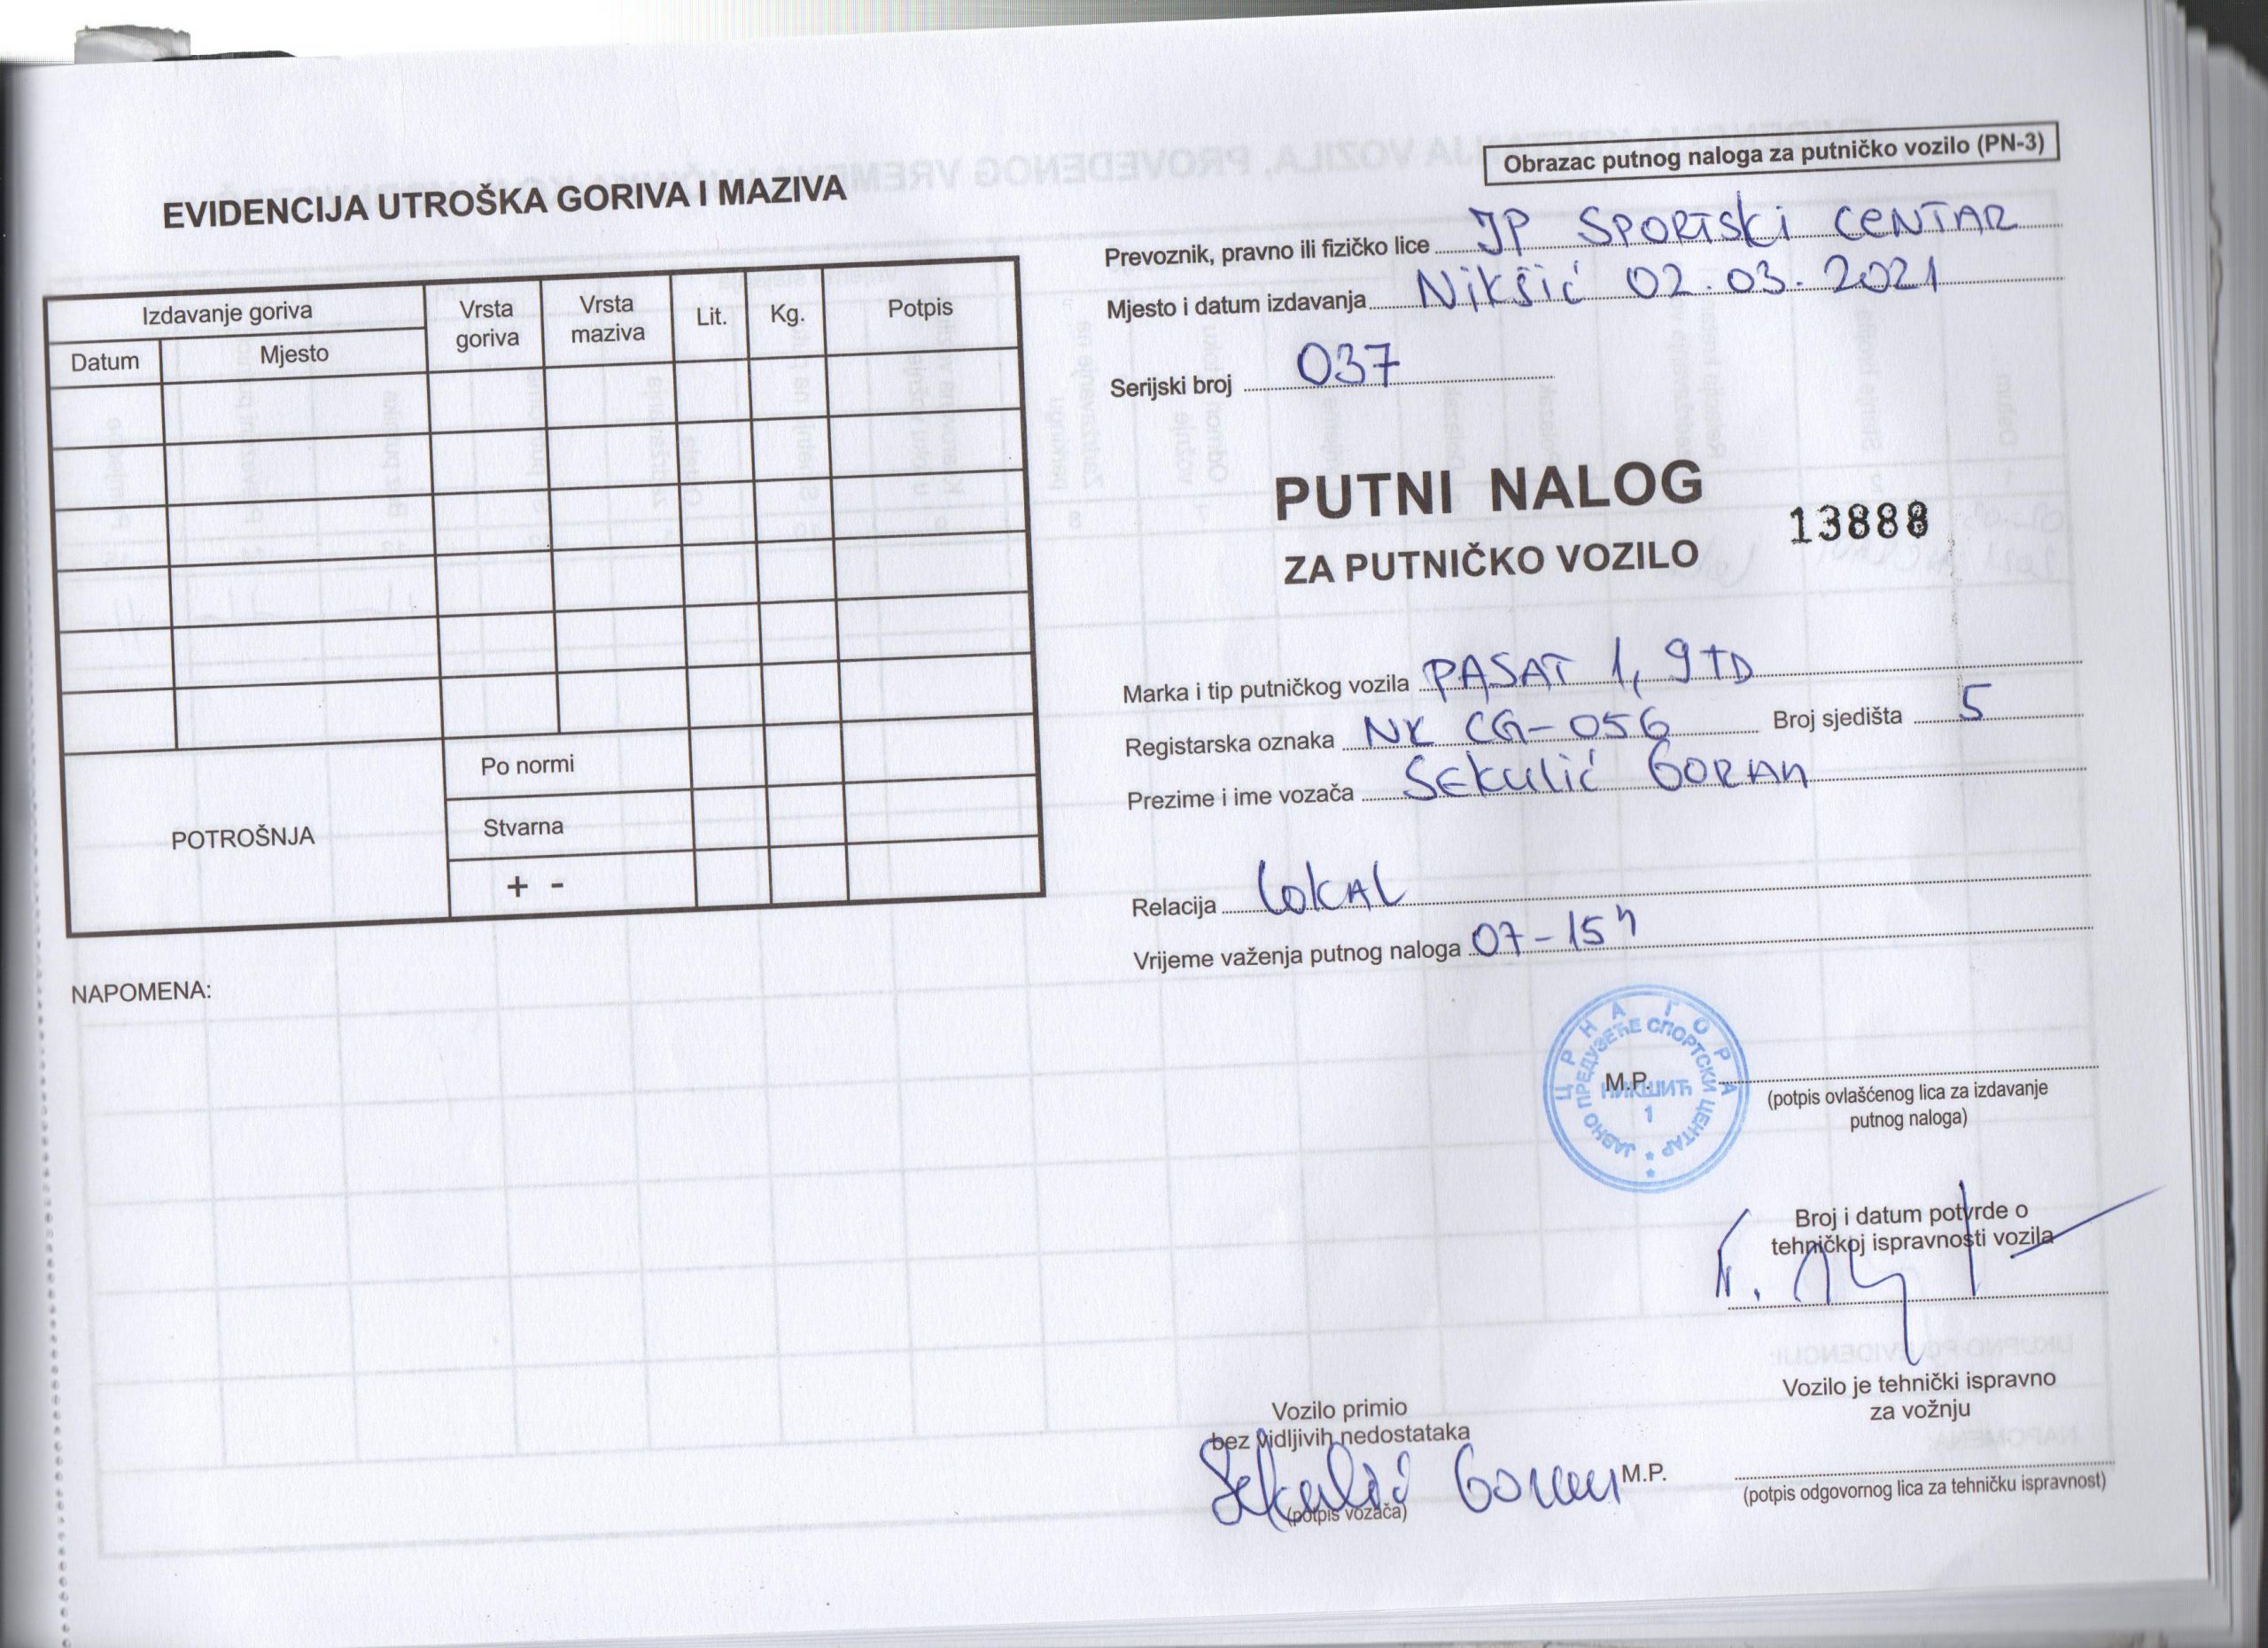 EVIDENCIJA UTROŠKA GORIVA I MAZIVA
Izdavanje goriva
Datum
Mjesto
Vrsta
goriva
Vrsta
maziva
Lit.
Kg.
Potpis
POTROŠNJA
Po normi
Stvarna
+ -
NAPOMENA:
Obrazac putnog naloga za putničko vozilo (PN-3)
Prevoznik, pravno ili fizičko lice JP SPORTSKI CENTAR
Mjesto i datum izdavanja Nikšić 02.03.2021
Serijski broj 037
PUTNI NALOG
13888
ZA PUTNIČKO VOZILO
Marka i tip putničkog vozila PASAT 1,9 TD
Registarska oznaka NK CG-056 Broj sjedišta 5
Prezime i ime vozača SEKULIĆ GORAN
Relacija LOKAL
Vrijeme važenja putnog naloga 07-15h
ЦРНА ГОРА
ЈАВНО ПРЕДУЗЕЋЕ СПОРТСКИ ЦЕНТАР
НИКШИЋ
1
M.P.
(potpis ovlašćenog lica za izdavanje
putnog naloga)
Broj i datum potvrde o
tehničkoj ispravnosti vozila
Vozilo je tehnički ispravno
za vožnju
Vozilo primio
bez vidljivih nedostataka
Sekulić Goran
M.P.
(potpis vozača)
(potpis odgovornog lica za tehničku ispravnost)